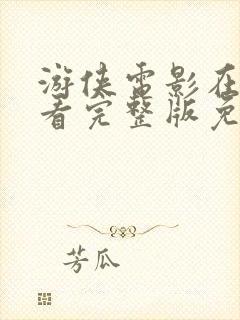 游侠电影在
看完整版免
芳瓜